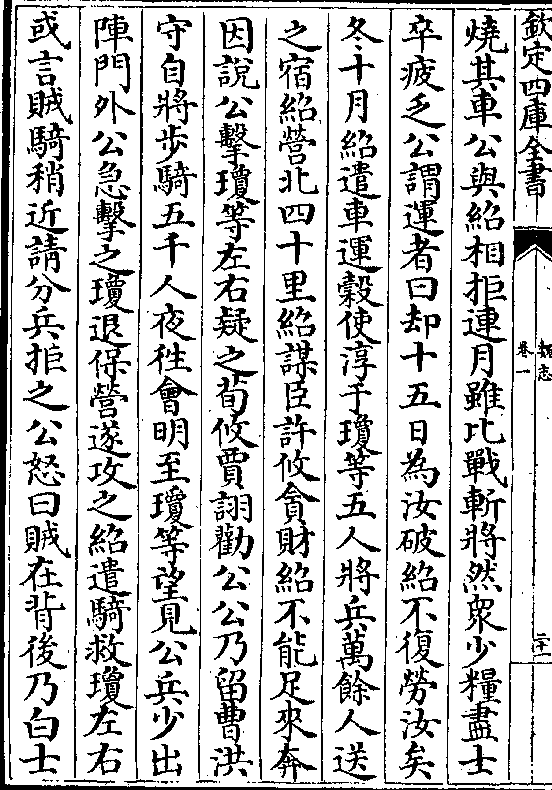 欽定四庫全書
魏志
卷一
二十一
燒其車公與紹相拒連月雖比戰斬將然衆少糧盡士
卒疲乏公謂運者曰却十五日為汝破紹不復勞汝矣
冬十月紹遣車運穀使淳于瓊等五人將兵萬餘人送
之宿紹營北四十里紹謀臣許攸貪財紹不能足來奔
因說公擊瓊等左右疑之荀攸賈詡勸公公乃留曹洪
守自將步騎五千人夜徃會明至瓊等望見公兵少出
陣門外公急擊之瓊退保營遂攻之紹遣騎救瓊左右
或言賊騎稍近請分兵拒之公怒曰賊在背後乃白士